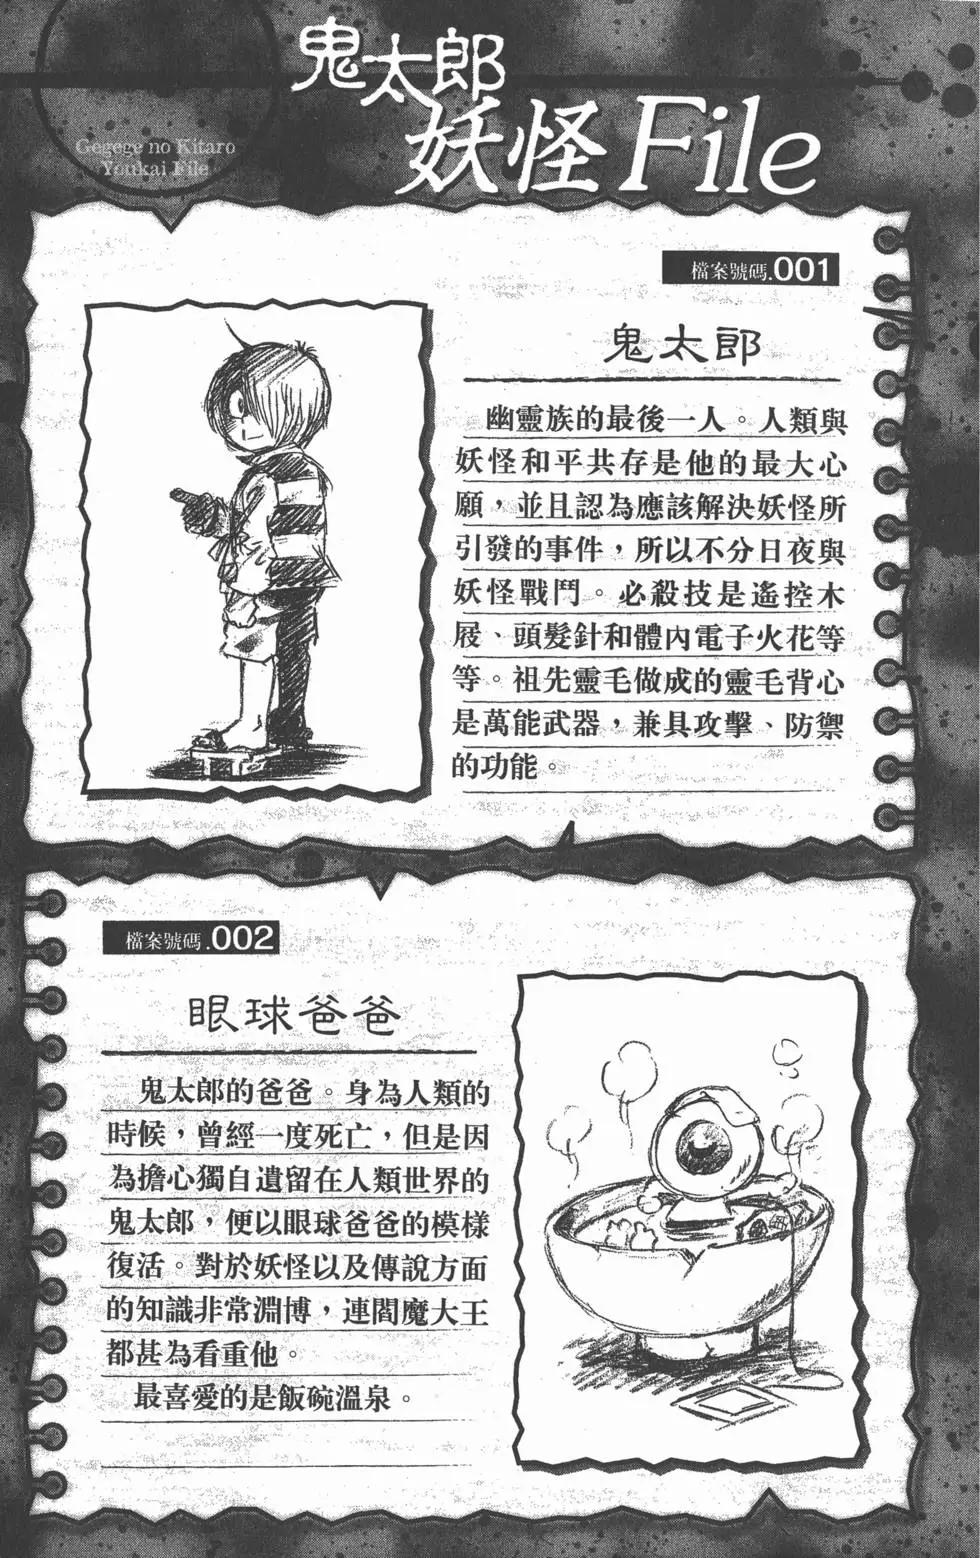 鬼太郎
妖怪File
Gegege no Kitaro
Youkai File
檔案號碼.001
鬼太郎
幽靈族的最後一人。人類與
妖怪和平共存是他的最大心
願，並且認為應該解決妖怪所
引發的事件，所以不分日夜與
妖怪戰鬥。必殺技是遙控木
屐、頭髮針和體內電子火花等
等。祖先靈毛做成的靈毛背心
是萬能武器，兼具攻擊、防禦
的功能。
檔案號碼.002
眼球爸爸
鬼太郎的爸爸。身為人類的
時候，曾經一度死亡，但是因
為擔心獨自遺留在人類世界的
鬼太郎，便以眼球爸爸的模樣
復活。對於妖怪以及傳說方面
的知識非常淵博，連閻魔大王
都甚為看重他。
最喜愛的是飯碗溫泉。